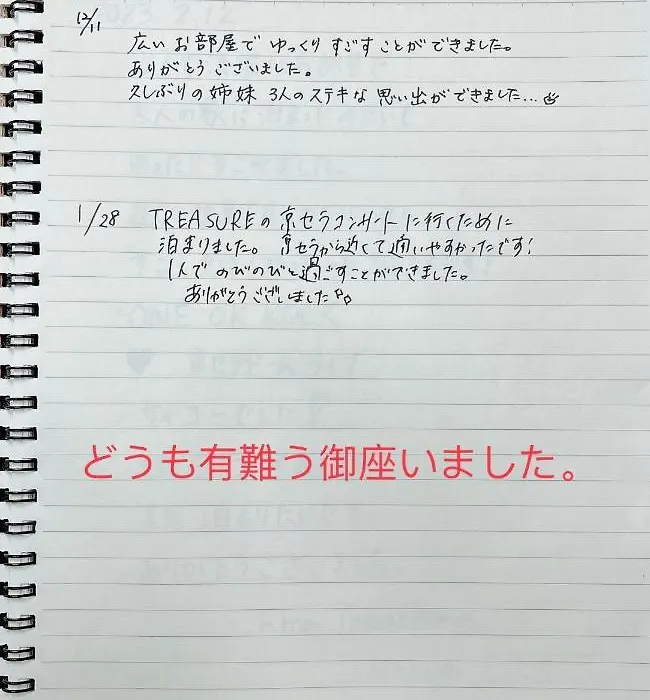 12/11
広い お部屋で ゆっくり すごす ことが できました。
ありがとう ございました。
久しぶりの 姉妹 3人の ステキな 思い出が できました...
1/28 TREASUREの 京セラコンサートに行くために
泊まりました。 京セラから近くて通いやすかったです!
1人で のびのびと過ごすことができました。
ありがとうございました
どうも有難う御座いました。